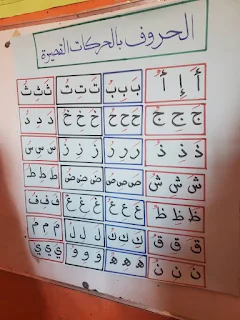 الحروف بالحركات القصيرة
أَ إِ أُ بَ بِ بُ تَ تِ تُ ثَ ثِ ثُ
جَ جِ جُ حَ حِ حُ خَ خِ خُ دَ دِ دُ
ذَ ذِ ذُ رَ رِ رُ زَ زِ زُ سَ سِ سُ
شَ شِ شُ صَ صِ صُ ضَ ضِ ضُ طَ طِ طُ
ظَ ظِ ظُ عَ عِ عُ غَ غِ غُ فَ فِ فُ
قَ قِ قُ كَ كِ كُ لَ لِ لُ مَ مِ مُ
نَ نِ نُ هَ هِ هُ وَ وِ وُ يَ يِ يُ